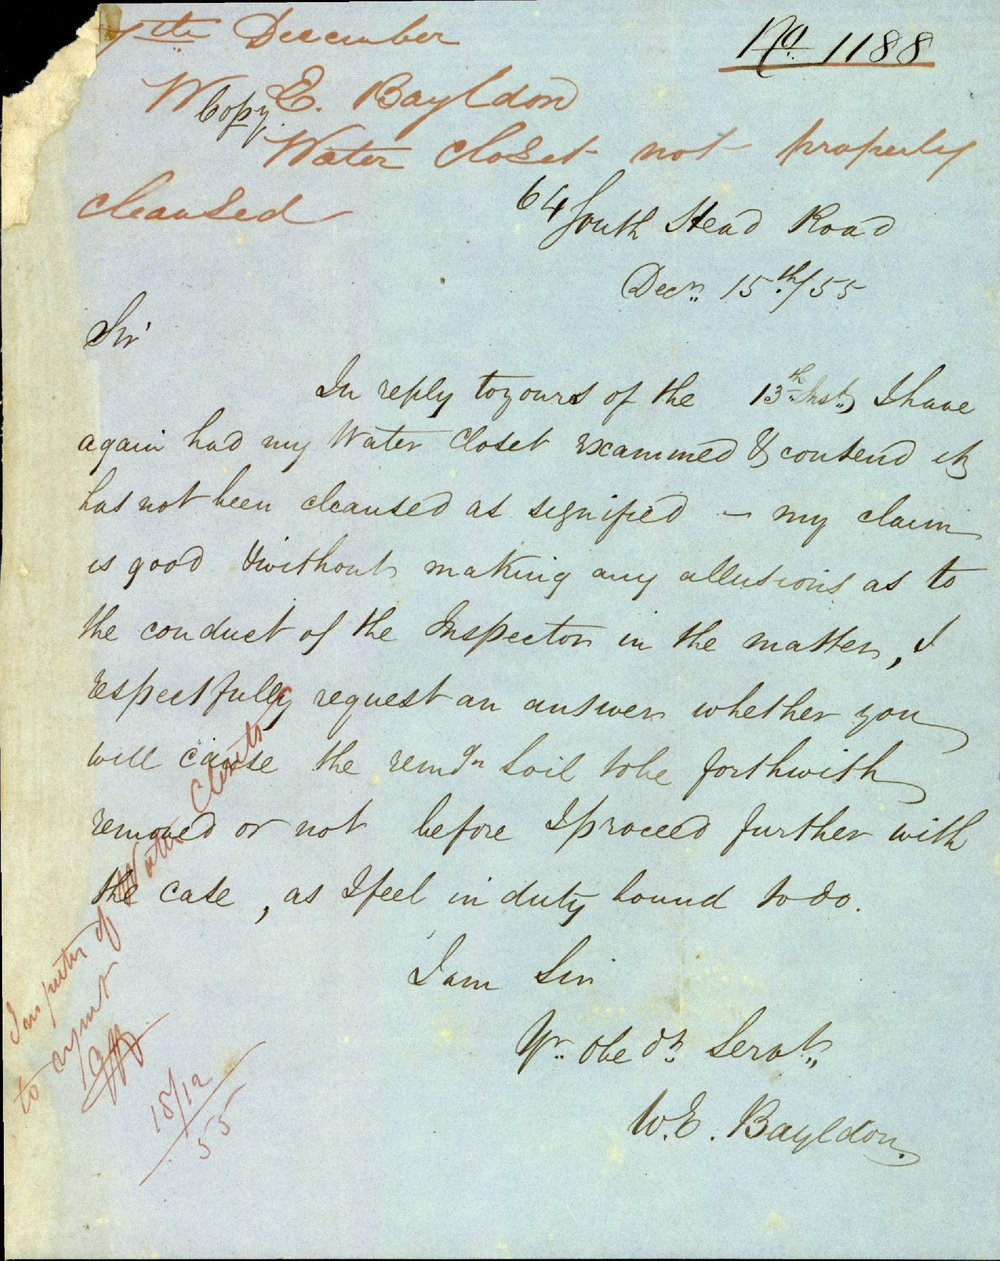 7th December
No. 1188
W E. Bayldon
Copy
Water Closet not properly
cleansed
64 South Head Road
Decr. 15th/55
Sir
In reply to yours of the 13th Inst, I have
again had my Water Closet Examined & contend it
has not been cleansed as signified – my claim
is good & without making any allusions as to
the conduct of the Inspector in the matter, I
respectfully request an answer whether you
will cause the remgn Soil to be forthwith
removed or not before I proceed further with
the case, as I feel in duty bound to do.
I am Sir
Yr. obedt. Servt.,
W.E. Bayldon.
Inspector of Water Closets
to report
18/12
55